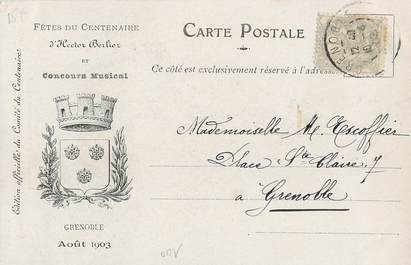 FÊTES DU CENTENAIRE
d'Hector Berlioz
ET
Concours Musical
Edition officielle du Comité du Centenaire
GRENOBLE
Août 1903
CARTE POSTALE
Ce côté est exclusivement réservé à l'adresse
Mademoiselle M. Escoffier
Place Ste Claire, 7
à Grenoble